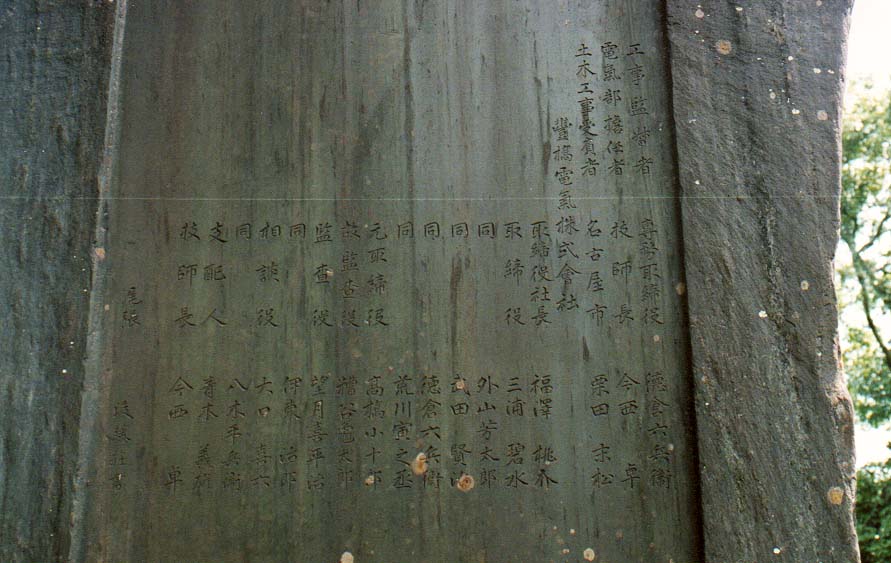 工事監督者 専務取締役 德倉六兵衛
電氣部擔任者 技師長 今西 卓
土木工事受負者 名古屋市 栗田 末松
豐橋電氣株式會社
取締役社長 福澤 桃介
取締役 三浦 碧水
同 外山芳太郎
同 武田 賢治
同 德倉六兵衛
同 荒川寅之丞
元取締役 高橋小十郎
故監査役 糟谷 太郎
監査役 望月喜平治
同 伊東 治郎
相談役 大口 喜六
同 八木平兵衛
支配人 青木 義
技師長 今西 卓
尾張